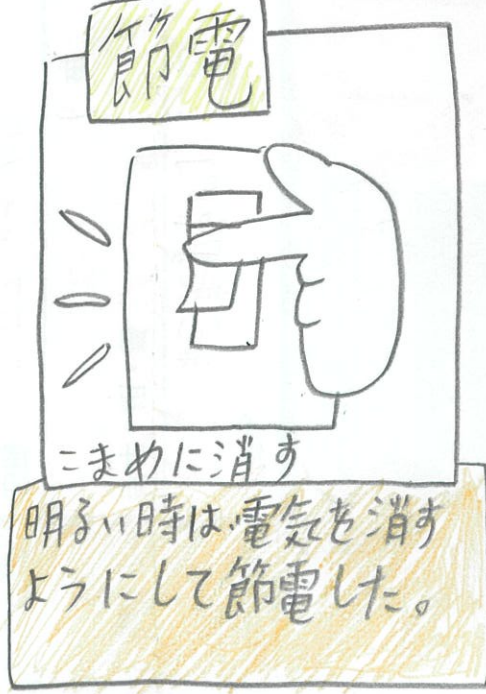 節電
こまめに消す
明るい時は電気を消す
ようにして節電した。